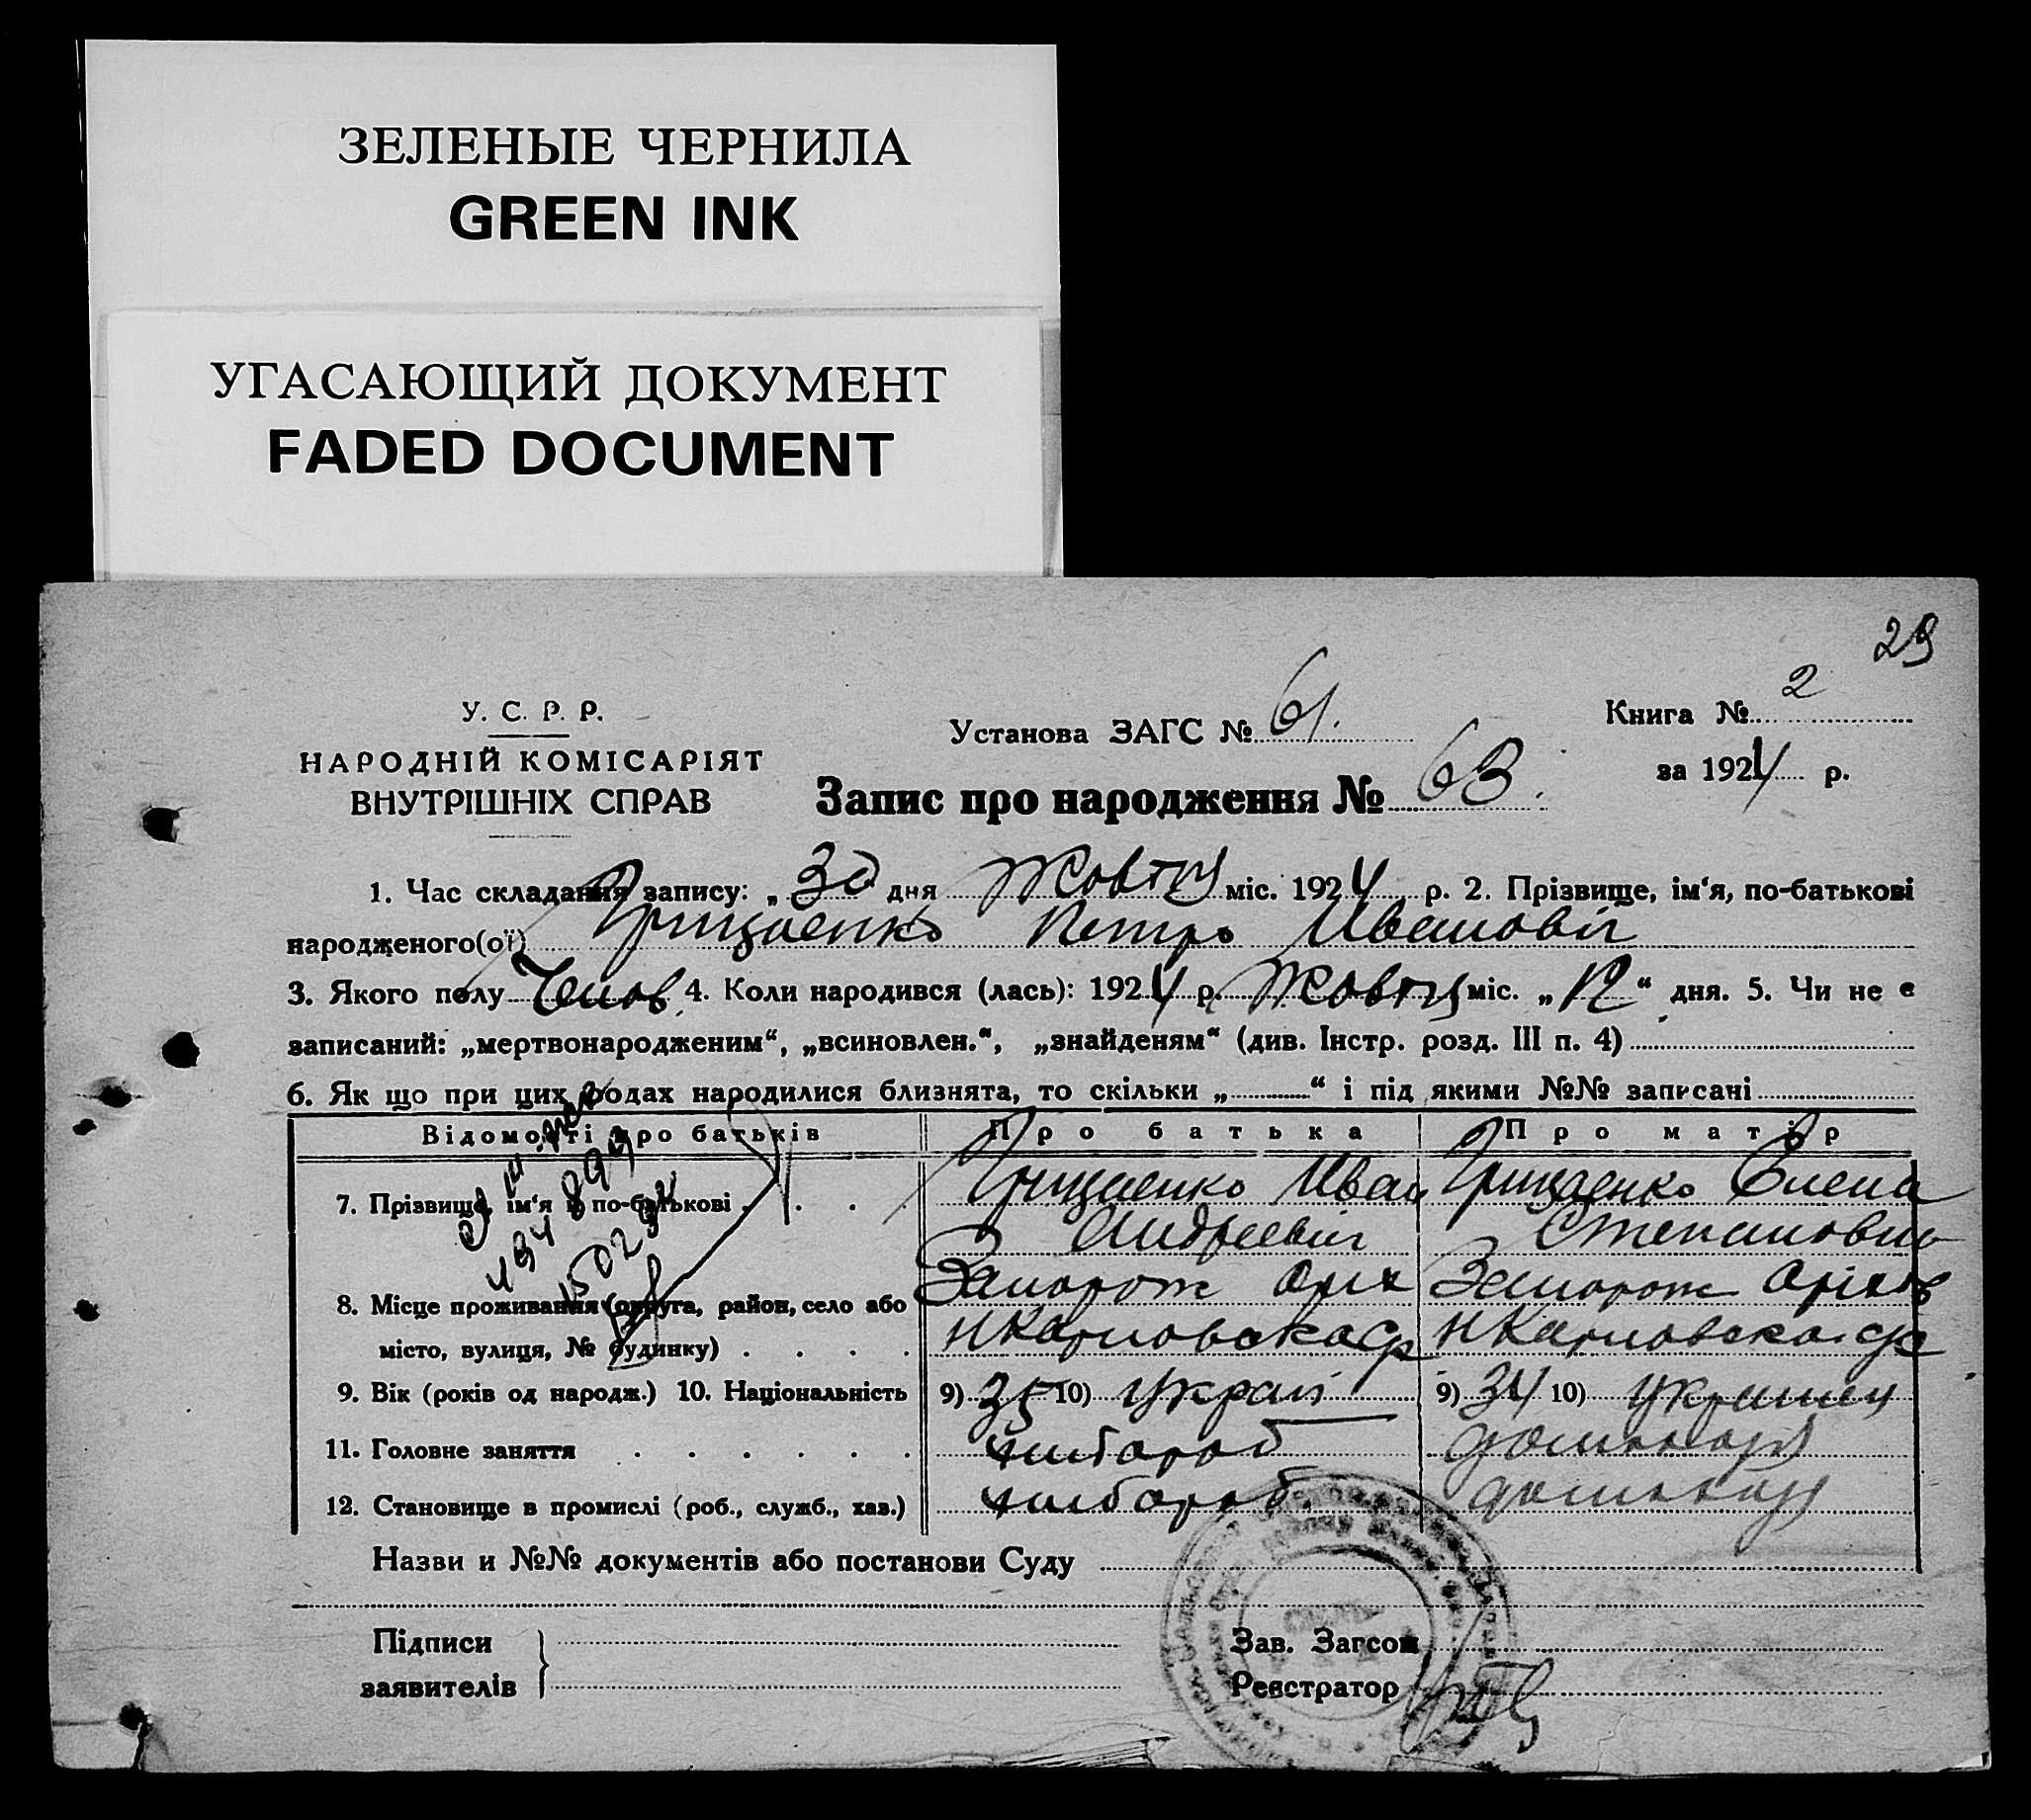 ЗЕЛЕНЫЕ ЧЕРНИЛА
GREEN INK
УГАСАЮЩИЙ ДОКУМЕНТ
FADED DOCUMENT
29
У. С. Р. Р.
НАРОДНІЙ КОМІСАРІЯТ
ВНУТРІШНІХ СПРАВ
Установа ЗАГС № 61.
Книга № 2
за 1924 р.
Запис про народження № 63.
1. Час складання запису: „30 дня Жовтц міс. 1924 р. 2. Прізвище, ім‘я, по-батькові
народженого(ої) Грицаенко Петро Ивановіч
3. Якого полу Чолов. 4. Коли народився (лась): 1924 р. Жовтц міс. „12“ дня. 5. Чи не є
записаний: „мертвонародженим“, „всиновлен.“, „знайденям“ (див. Інстр. розд. III п. 4)
6. Як що при цих родах народилися близнята, то скільки „ “ і під якими №№ записані
Відомості про батьків Про батька Про матір
7. Прізвище, ім‘я й по-батькові Грицаенко Иван Грицаенко Елена
Андреевіч Степановна
8. Місце проживання (округа, район, село або Запорож Оріх Запорож Оріхів
місто, вулиця, № будинку) НКарловка НКарловка
9. Вік (років од народж.) 10. Національність 9) 35 10) Украї 9) 34 10) Украинц
11. Головне заняття хлібороб домохоз
12. Становище в промислі (роб., служб., хаз.) хлібороб. домохоз
Назви и №№ документів або постанови Суду
Підписи
заявителів
Зав. Загсом
Реєстратор